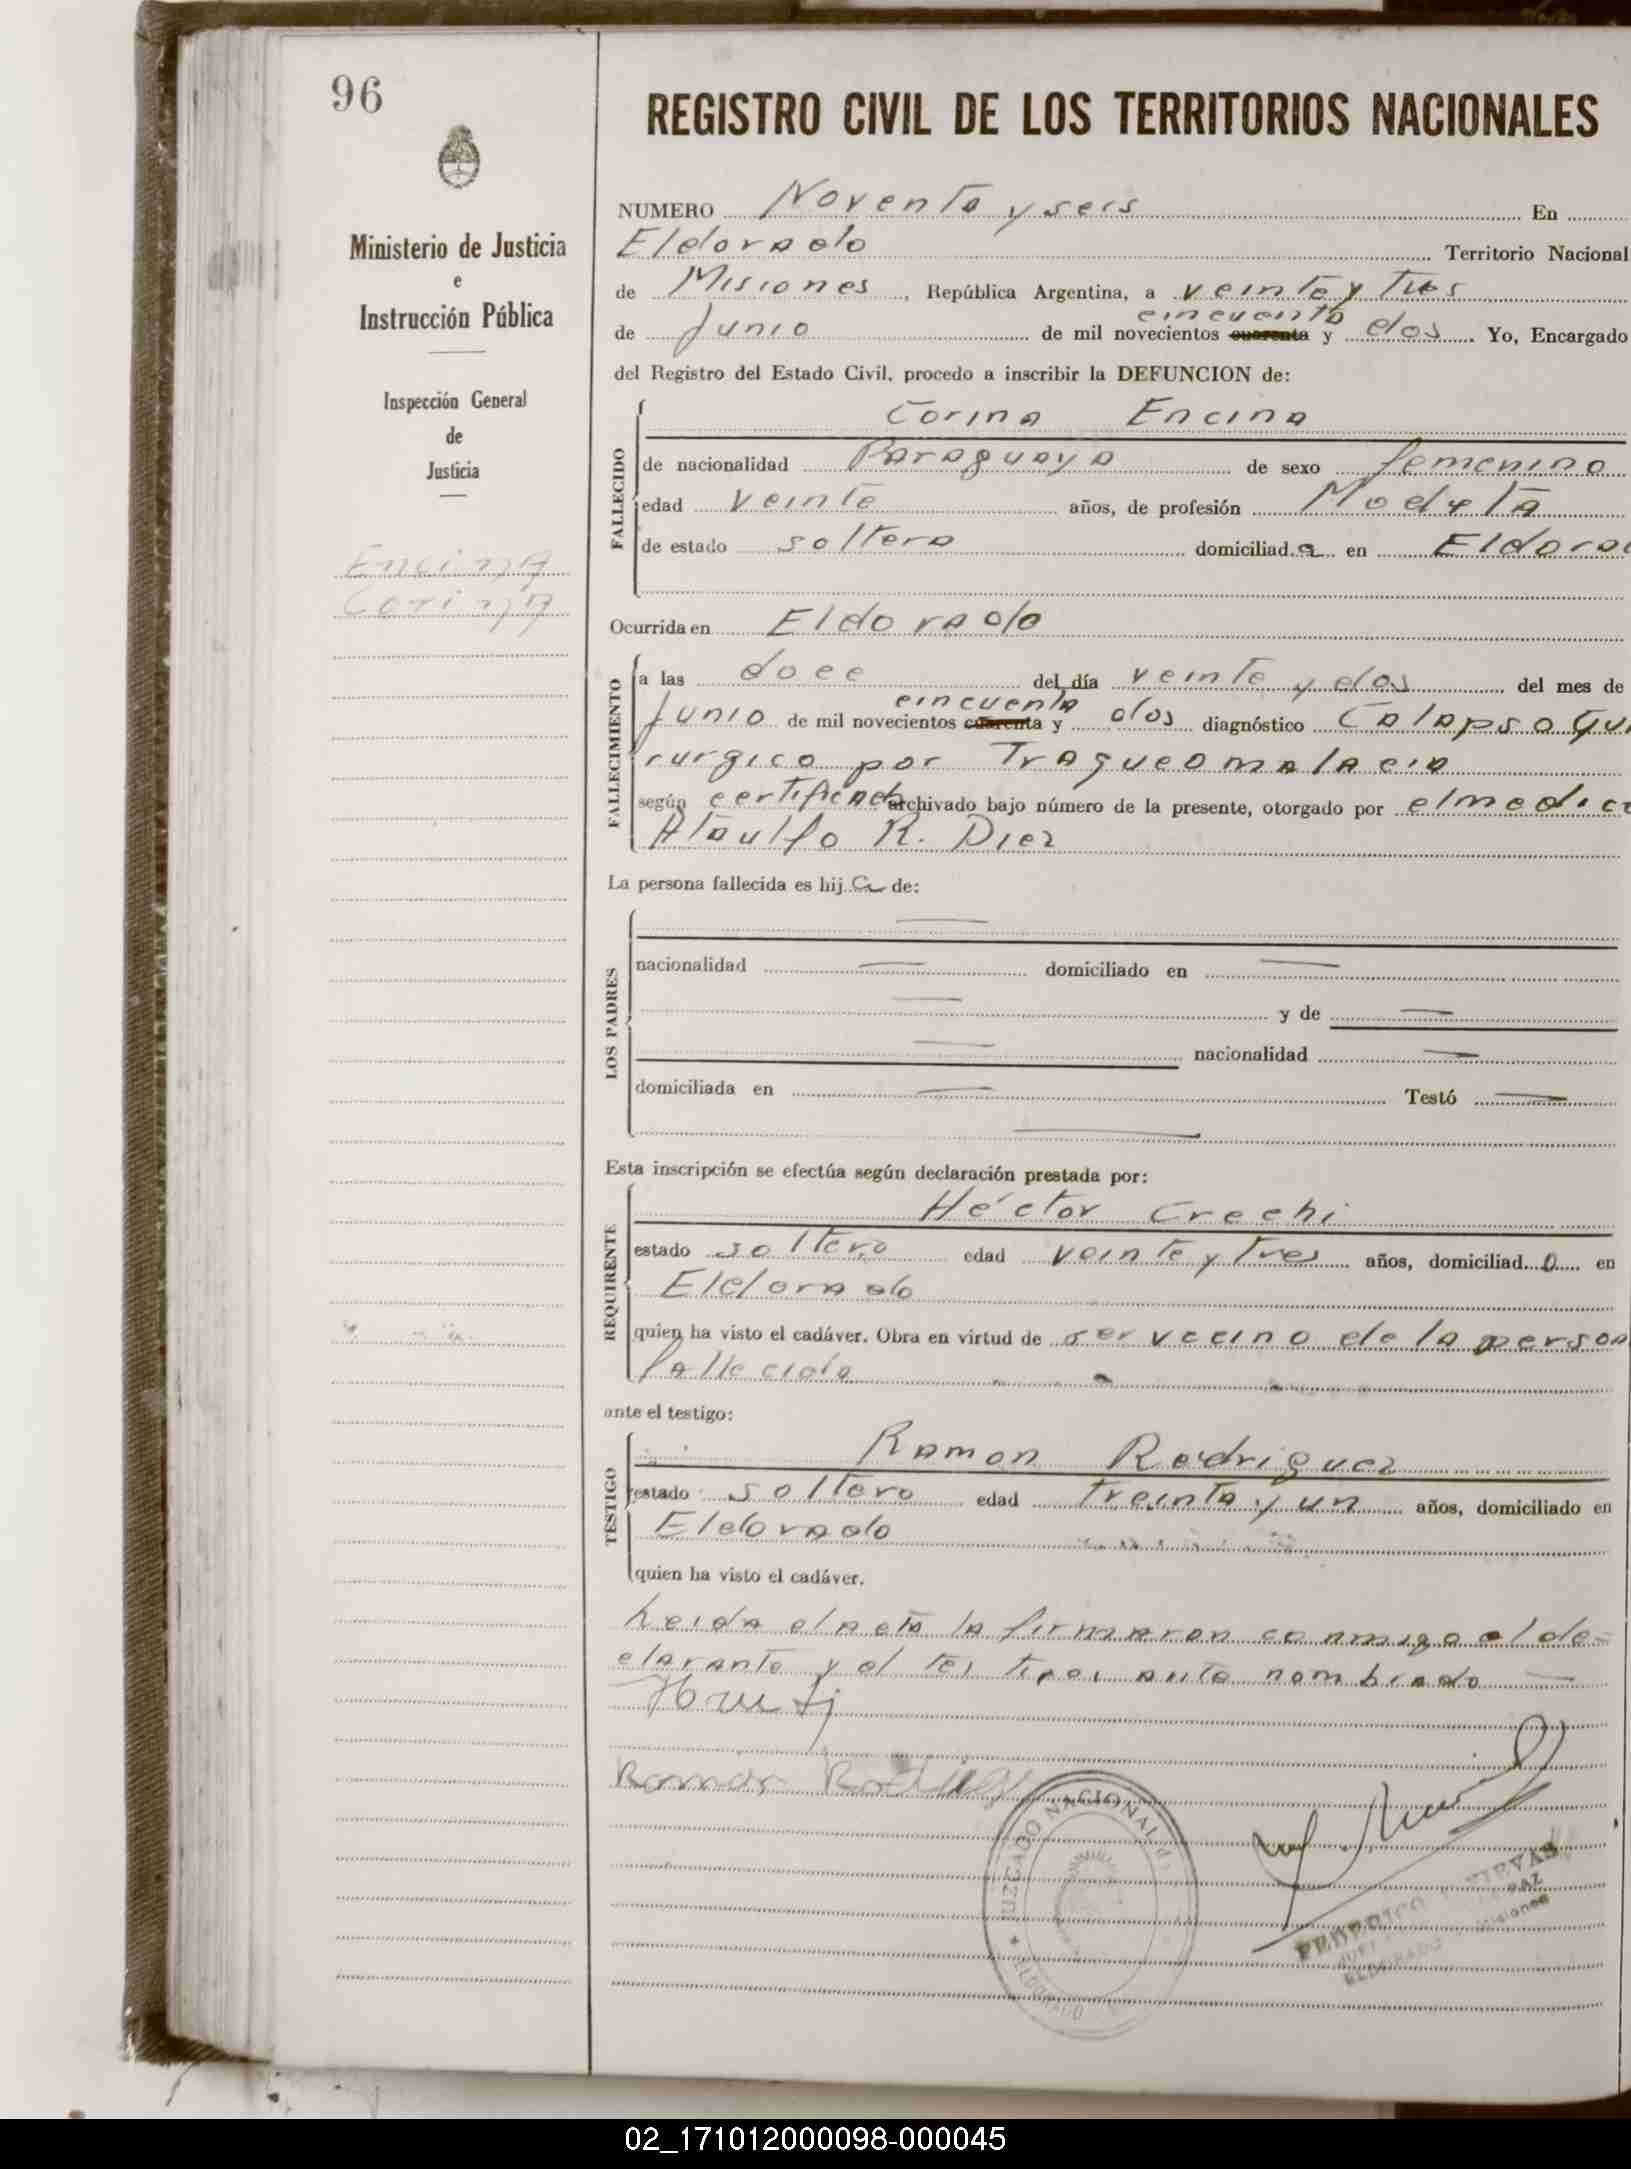 96
Ministerio de Justicia
e
Instrucción Pública
Inspección General
de
Justicia
Encina
Corina
REGISTRO CIVIL DE LOS TERRITORIOS NACIONALES
NUMERO Noventa y seis En
Eldorado Territorio Nacional
de Misiones, República Argentina, a veinte y tres
cincuenta
de Junio de mil novecientos cuarenta y dos. Yo, Encargado
del Registro del Estado Civil, procedo a inscribir la DEFUNCION de:
FALLECIDO
Corina Encina
de nacionalidad Paraguaya de sexo femenino
edad veinte años, de profesión Modista
de estado soltera domiciliada en Eldora
Ocurrida en Eldorado
FALLECIMIENTO
a las doce del día veinte y dos del mes de
cincuenta
Junio de mil novecientos cuarenta y dos diagnóstico Colapso Qui
rurgico por Traqueomalacia
según certificado archivado bajo número de la presente, otorgado por el medico
Ataulfo R. Diez
La persona fallecida es hija de:
LOS PADRES
nacionalidad domiciliado en
y de
nacionalidad
domiciliada en Testó
Esta inscripción se efectúa según declaración prestada por:
REQUIRENTE
Héctor Crechi
estado soltero edad veinte y tres años, domiciliado en
Eldorado
quien ha visto el cadáver. Obra en virtud de ser vecino de la person
fallecida
ante el testigo:
TESTIGO
Ramon Rodriguez
estado soltero edad treinta y un años, domiciliado en
Eldorado
quien ha visto el cadáver.
Leida el acta la firmaron conmigo el de-
clarante y el testigo ante nombrado
Ramon Rodriguez
JUZGADO NACIONAL
ELDORADO
FEDERICO NIEVAS
JUEZ PAZ
ELDORADO Misiones
02_171012000098-000045